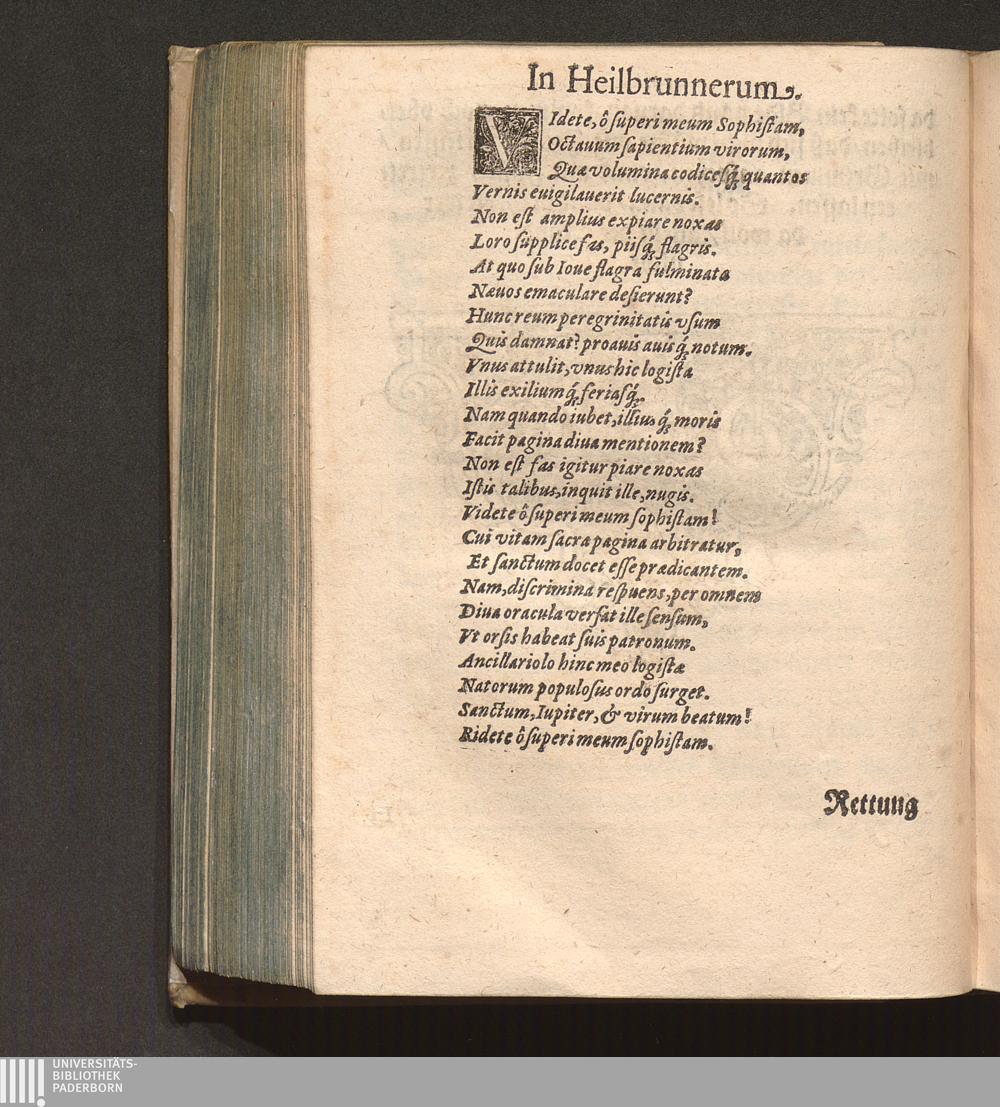 In Heilbrunnerum.
VIdete, ô ſuperi meum Sophiſtam,
Octauum ſapientium virorum,
Quæ volumina codiceſq́; quantos
Vernis euigilauerit lucernis.
Non eſt amplius expiare noxas
Loro ſupplice fas, piiſq́; flagris.
At quo ſub Ioue flagra fulminata
Næuos emaculare deſierunt?
Hunc reum peregrinitatis vſum
Quis damnat? proauis auiſq́; notum.
Vnus attulit, vnus hic logiſta
Illis exiliumq́; feriaſq́;.
Nam quando iubet, illiuſq́; moris
Facit pagina diua mentionem?
Non eſt fas igitur piare noxas
Iſtis talibus, inquit ille, nugis.
Videte ô ſuperi meum ſophiſtam!
Cui vitam ſacra pagina arbitratur,
Et ſanctum docet eſſe prædicantem.
Nam, diſcrimina reſpuens, per omnem
Diua oracula verſat ille ſenſum,
Vt orſis habeat ſuis patronum.
Ancillariolo hinc meo logiſtæ
Natorum populoſus ordo ſurget.
Sanctum, Iupiter, & virum beatum!
Ridete ô ſuperi meum ſophiſtam.
Rettung
UNIVERSITÄTS-
BIBLIOTHEK
PADERBORN